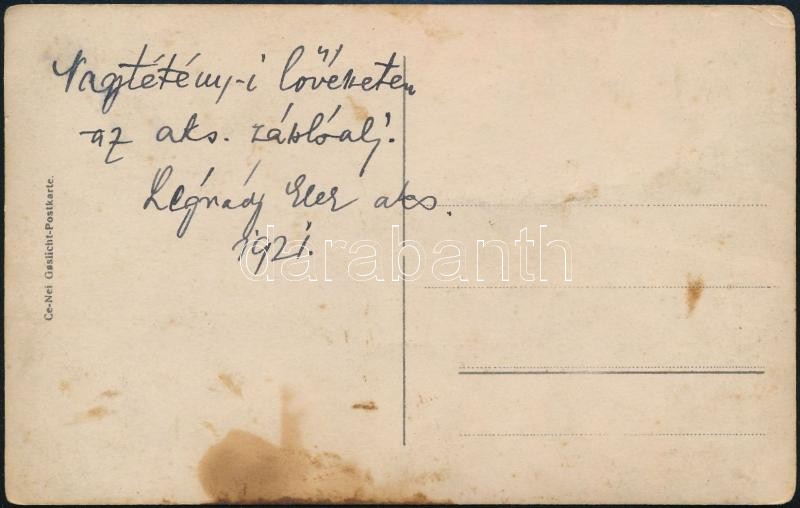 Nagytétény-i lövészeten
az aks. zászlóalj.
Légrády Elek aks.
1921.
Ce-Nei Gaslicht-Postkarte.
darabanth